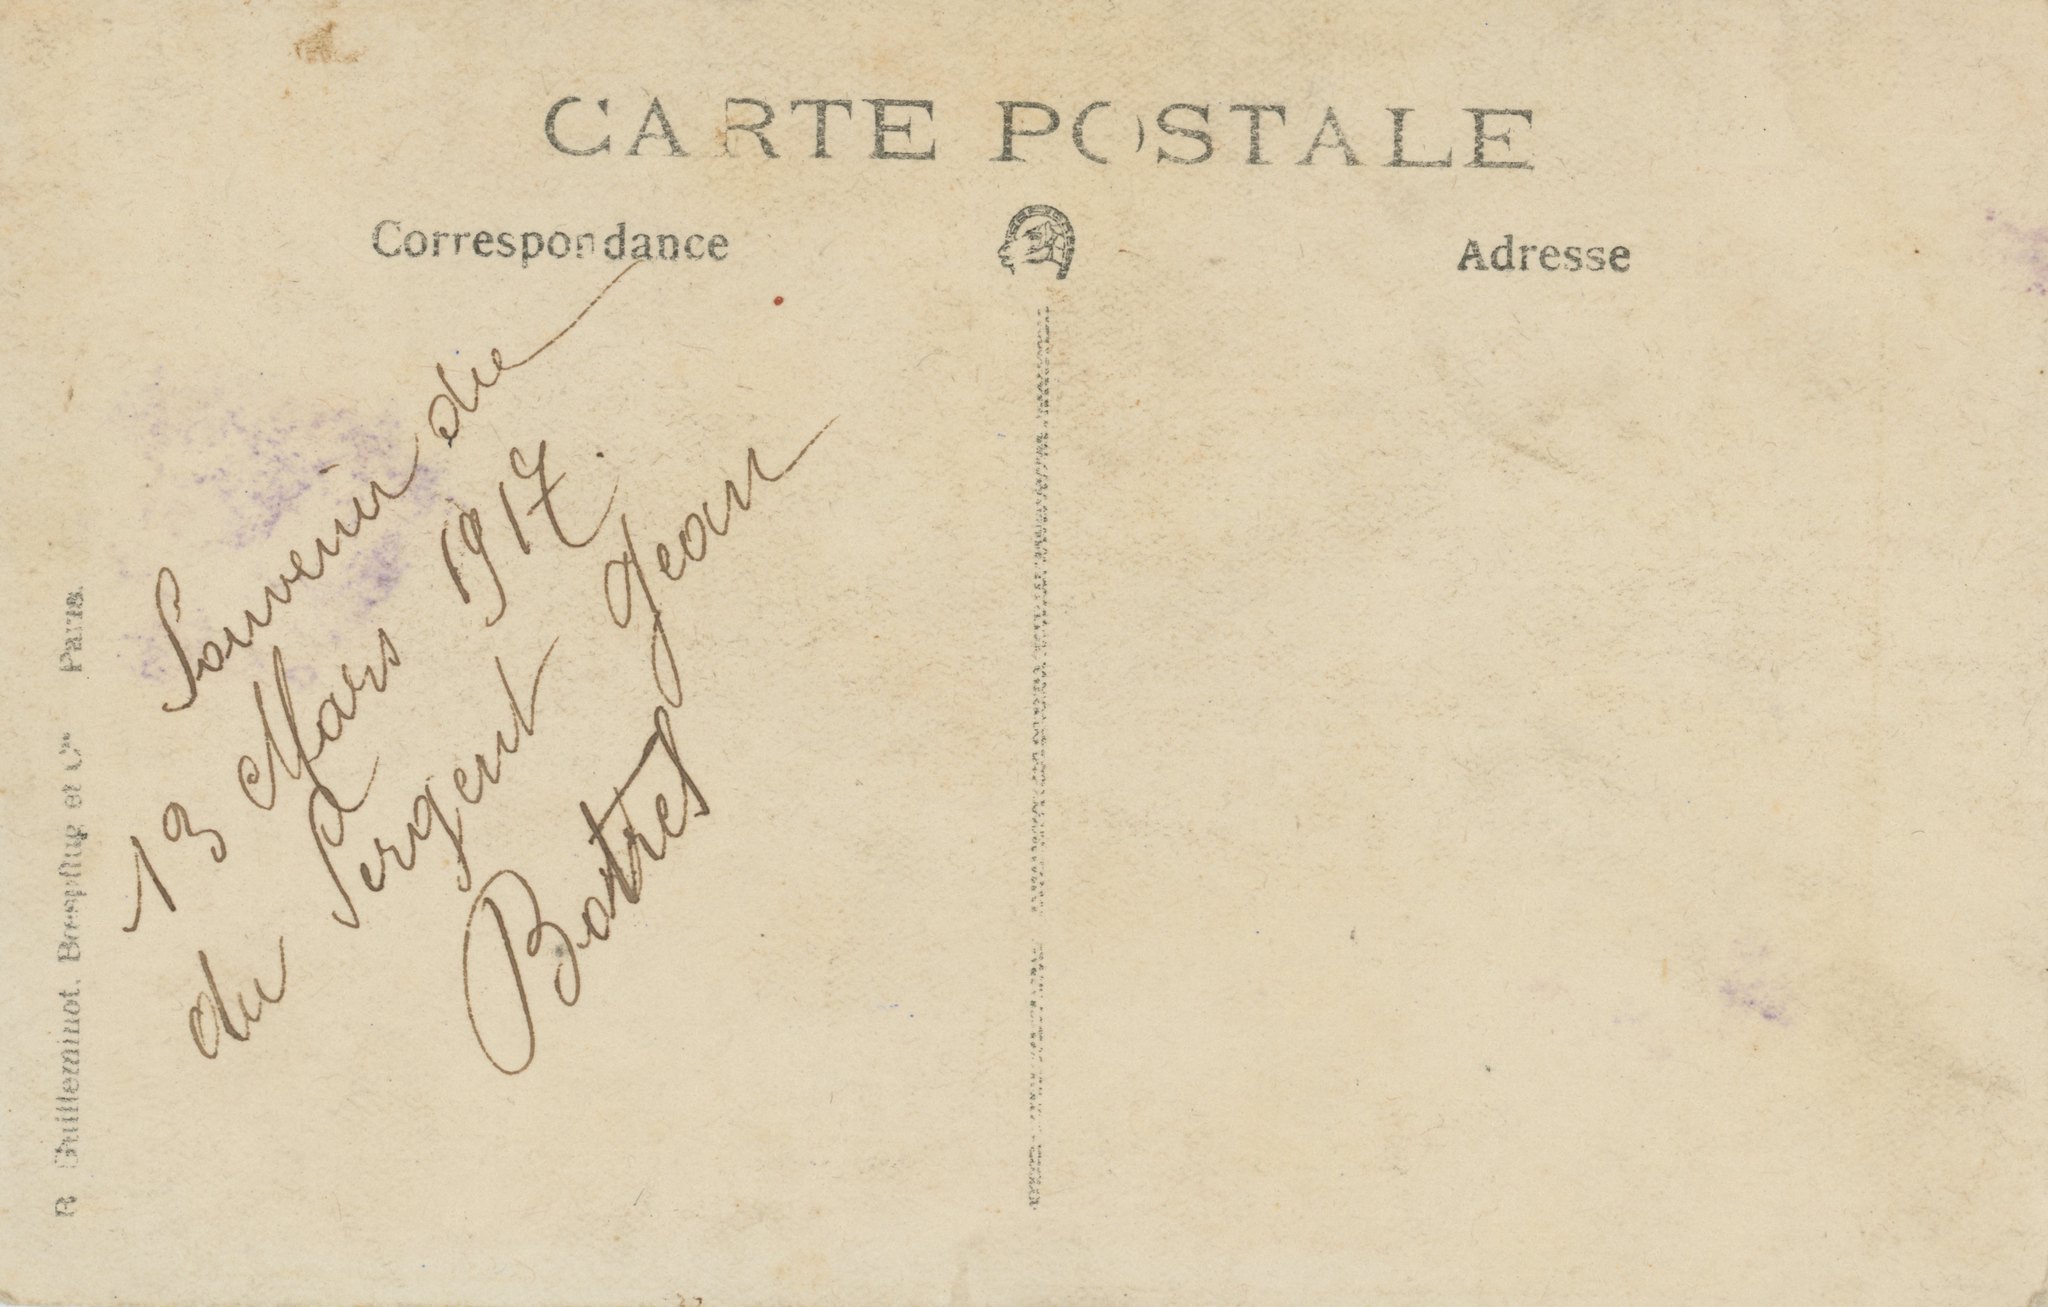 CARTE POSTALE
Correspondance
Adresse
Souvenir du
13 Mars 1917.
du Sergent Jean
Botrel
R. Guilleminot, Bœspflug et Cie Paris